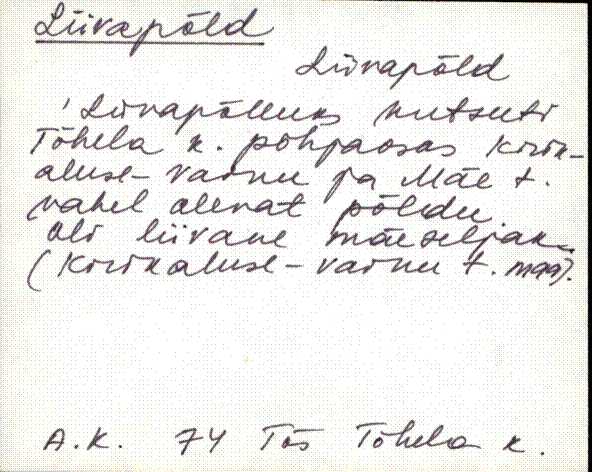 Liivapõld
Liivapõld
'Liivapõlluks kutsuti
Tõhela k. põhjaosas Kirik-
aluse-vainu ja Mäe t.
vahel olevat põldu.
Oli liivane mäeseljak
(Kirikaluse-vainu t. maa).
A.K. 74 Tõs Tõhela k.